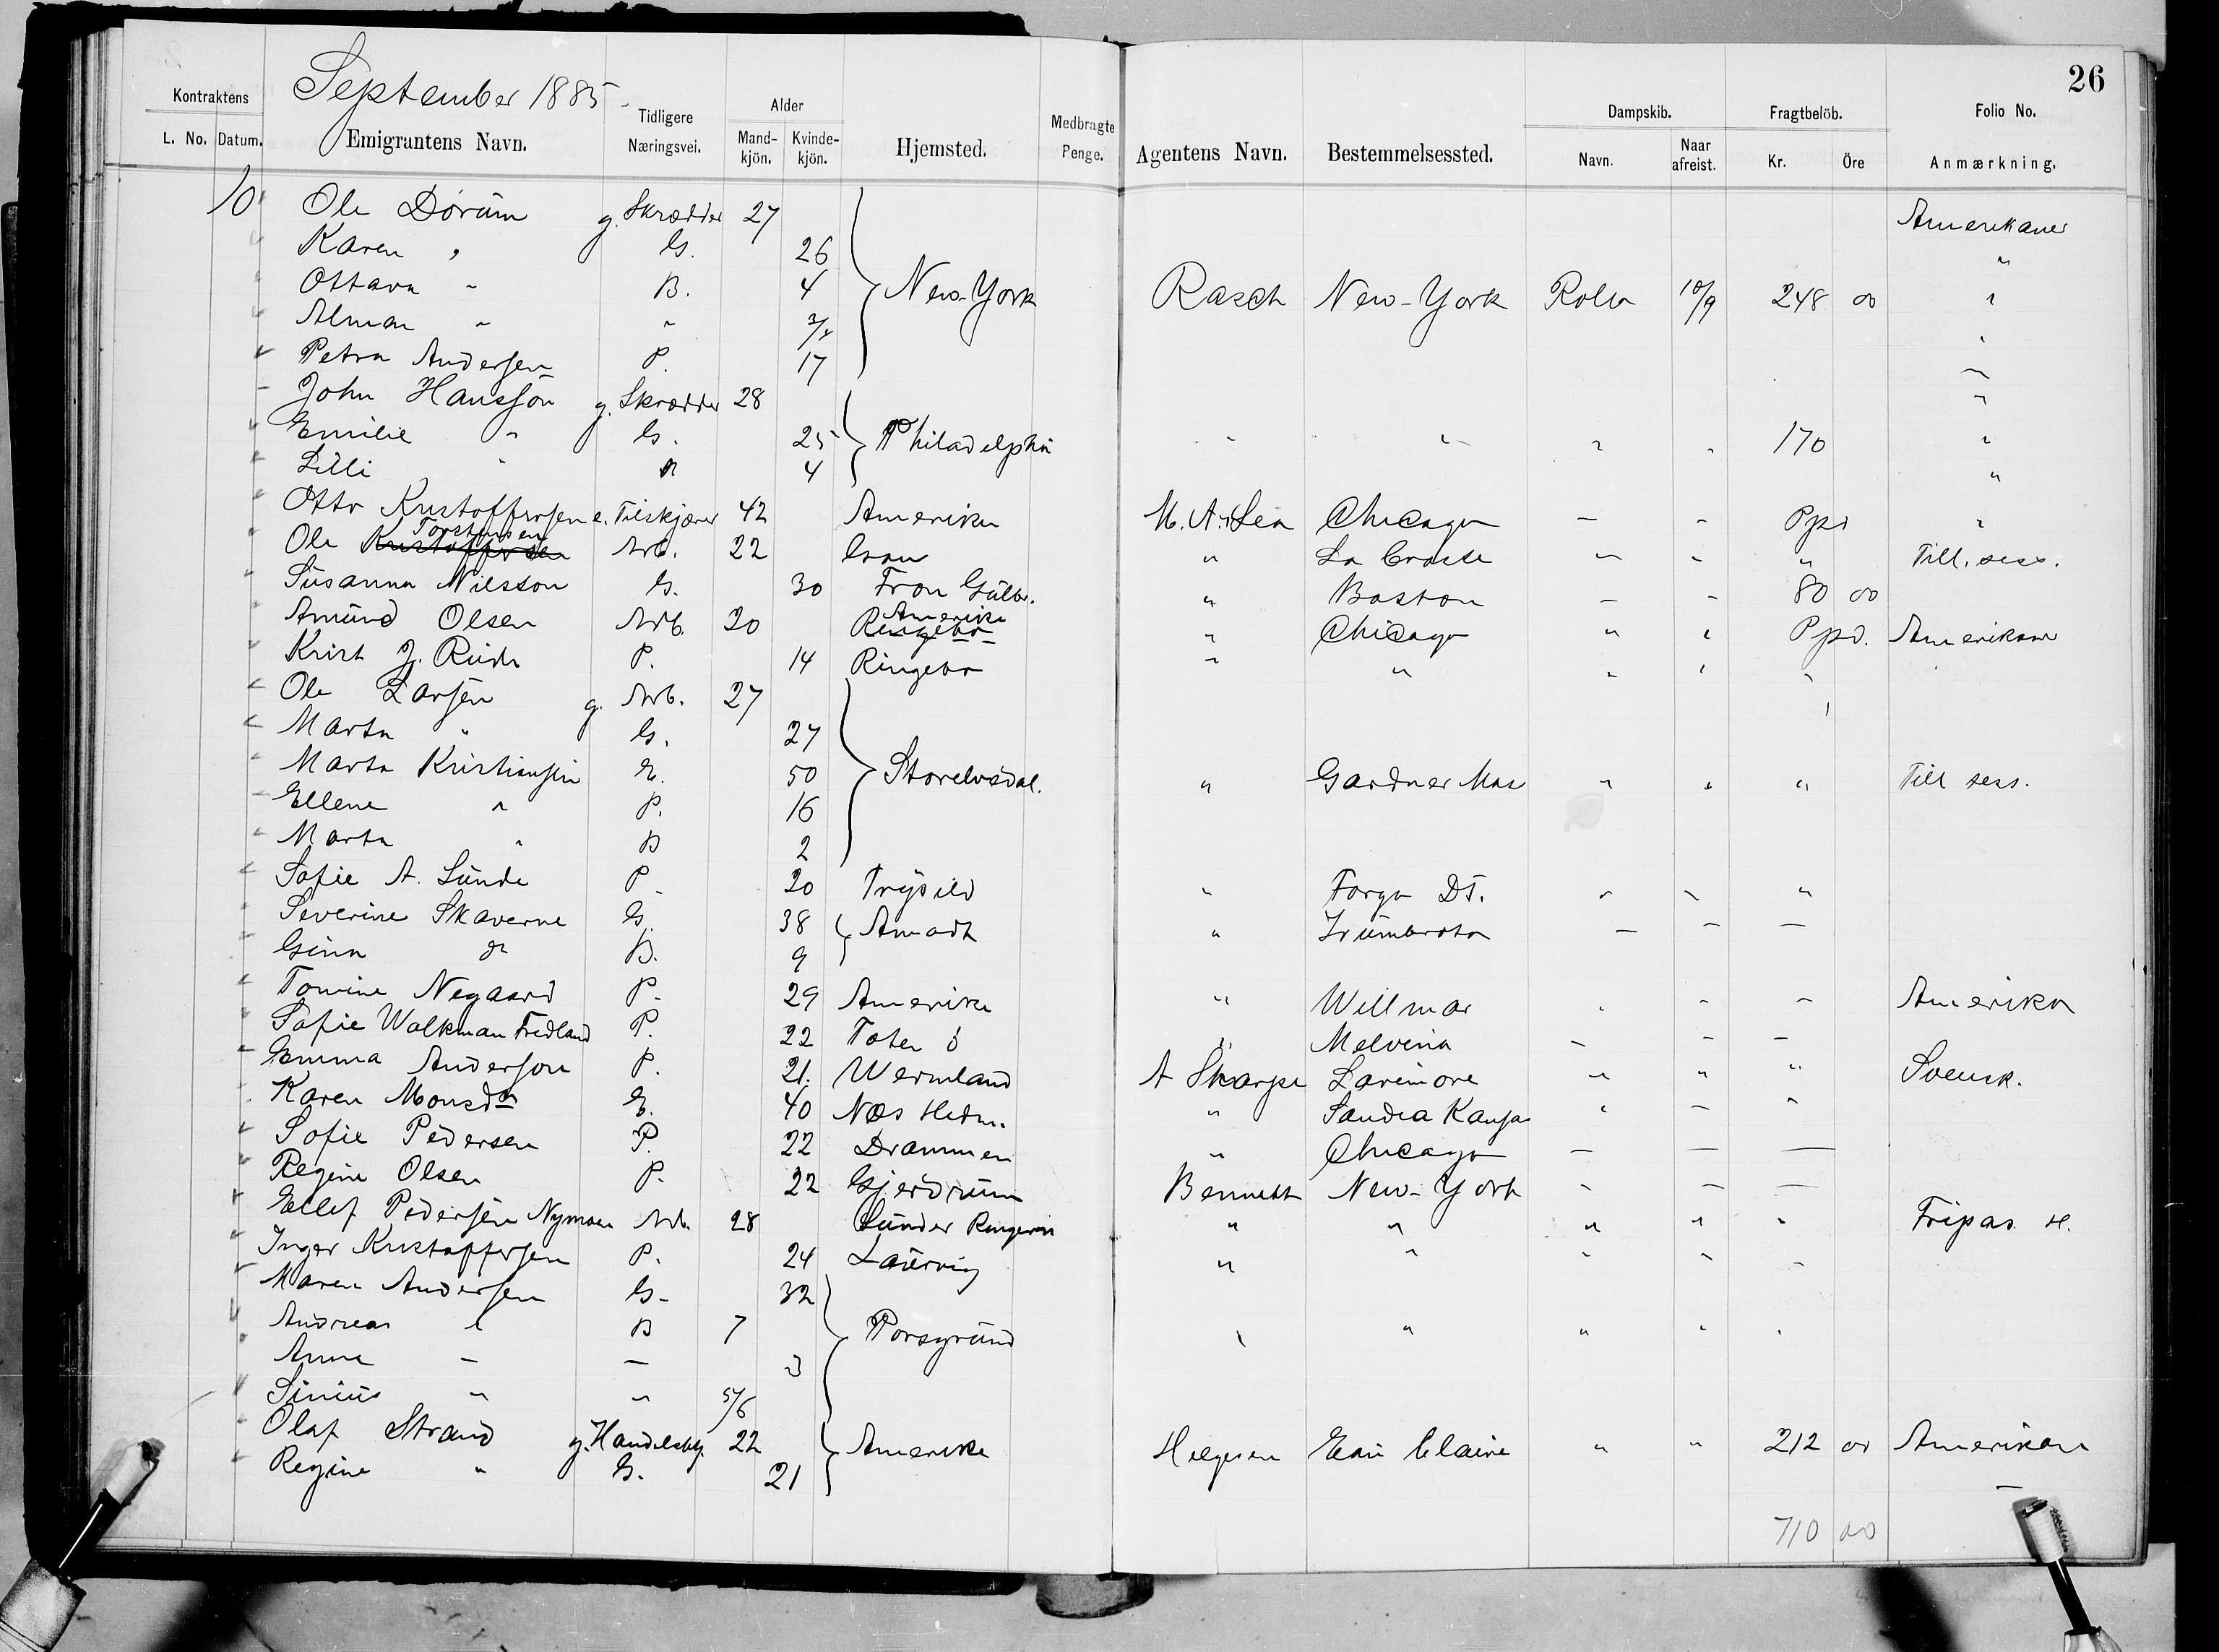 26
September 1885
Kontraktens L. No. Datum. Emigrantens Navn. Tidligere Næringsvei. Alder Mandkjön. Kvindekjön. Hjemsted. Medbragte Penge. Agentens Navn. Bestemmelsessted. Dampskib. Navn. Naar afreist. Fragtbelöb. Kr. Öre Folio No. Anmærkning.
10 Ole Dørum g. Skrædder 27 Amerikaner
Karen " G. 26 "
Ottava " B. 4 New-York Rasch New-York Rollo 10/9 248 00 "
Alma " " "
Petra Andersen P. 17 "
John Hansson g. Skrædder 28 "
Emilie " G. 25 Philadelphia " " " " 170 "
Lilli " " 4 "
Otto Kristoffersen e. Tilskjærer 42 Amerika Chicago — " Ppd "
Ole Kristoffersen Torstensen Arb. 22 Gran " La Crosse " " " Till. sess.
Susanna Nilsson G. 30 Fron Gulbr. " Boston — " 80 00
Amund Olsen Arb. 20 Ringebo Amerika " Chicago " " Ppd. Amerikaner
Krist J. Rude P. 14 Ringebo " " " " "
Ole Larsen g. Arb. 27
Marta " G. 27
Marta Kristiansen E. 50 Storelvedal. " Gardner Mas " " " Till sess.
Ellene " P. 16
Marta " B 2
Sofie A. Lunde P. 20 Trysild " Fargo DT. " " "
Severine Skaverne G. 38 Amodt " Zumbrota — — —
Gina " B. 9
Tomine Negaard P. 29 Amerika " Willmar " " " Amerika
Sofie Walkman Fredland P. 22 Toten Ö " Melvina — — —
Emma Anderson P. 21. Wermland A Sharpe Larimore " " " Svensk.
Karen Monsdr E. 40 Næs Hedm. " " — "
Sofie Pedersen P. 22 Drammen " Chicago — — —
Regine Olsen P. 22 Gjerdrum Bennett New-York " — —
Ellef Pedersen Nymoen Arb. 28 " " " " " Fripas
Inger Kristoffersen P. 24 Laurvig " " " " "
Maren Andersen G. 32
Andreas " B 7 Porsgrund " " " " "
Anna — — 3
Sinius " " 5/6
Olaf Strand g. Handelsbtj. 22 Amerika Helgesen Eau Claire " " 212 00 Amerikan
Regine " G. 21 —
710 00